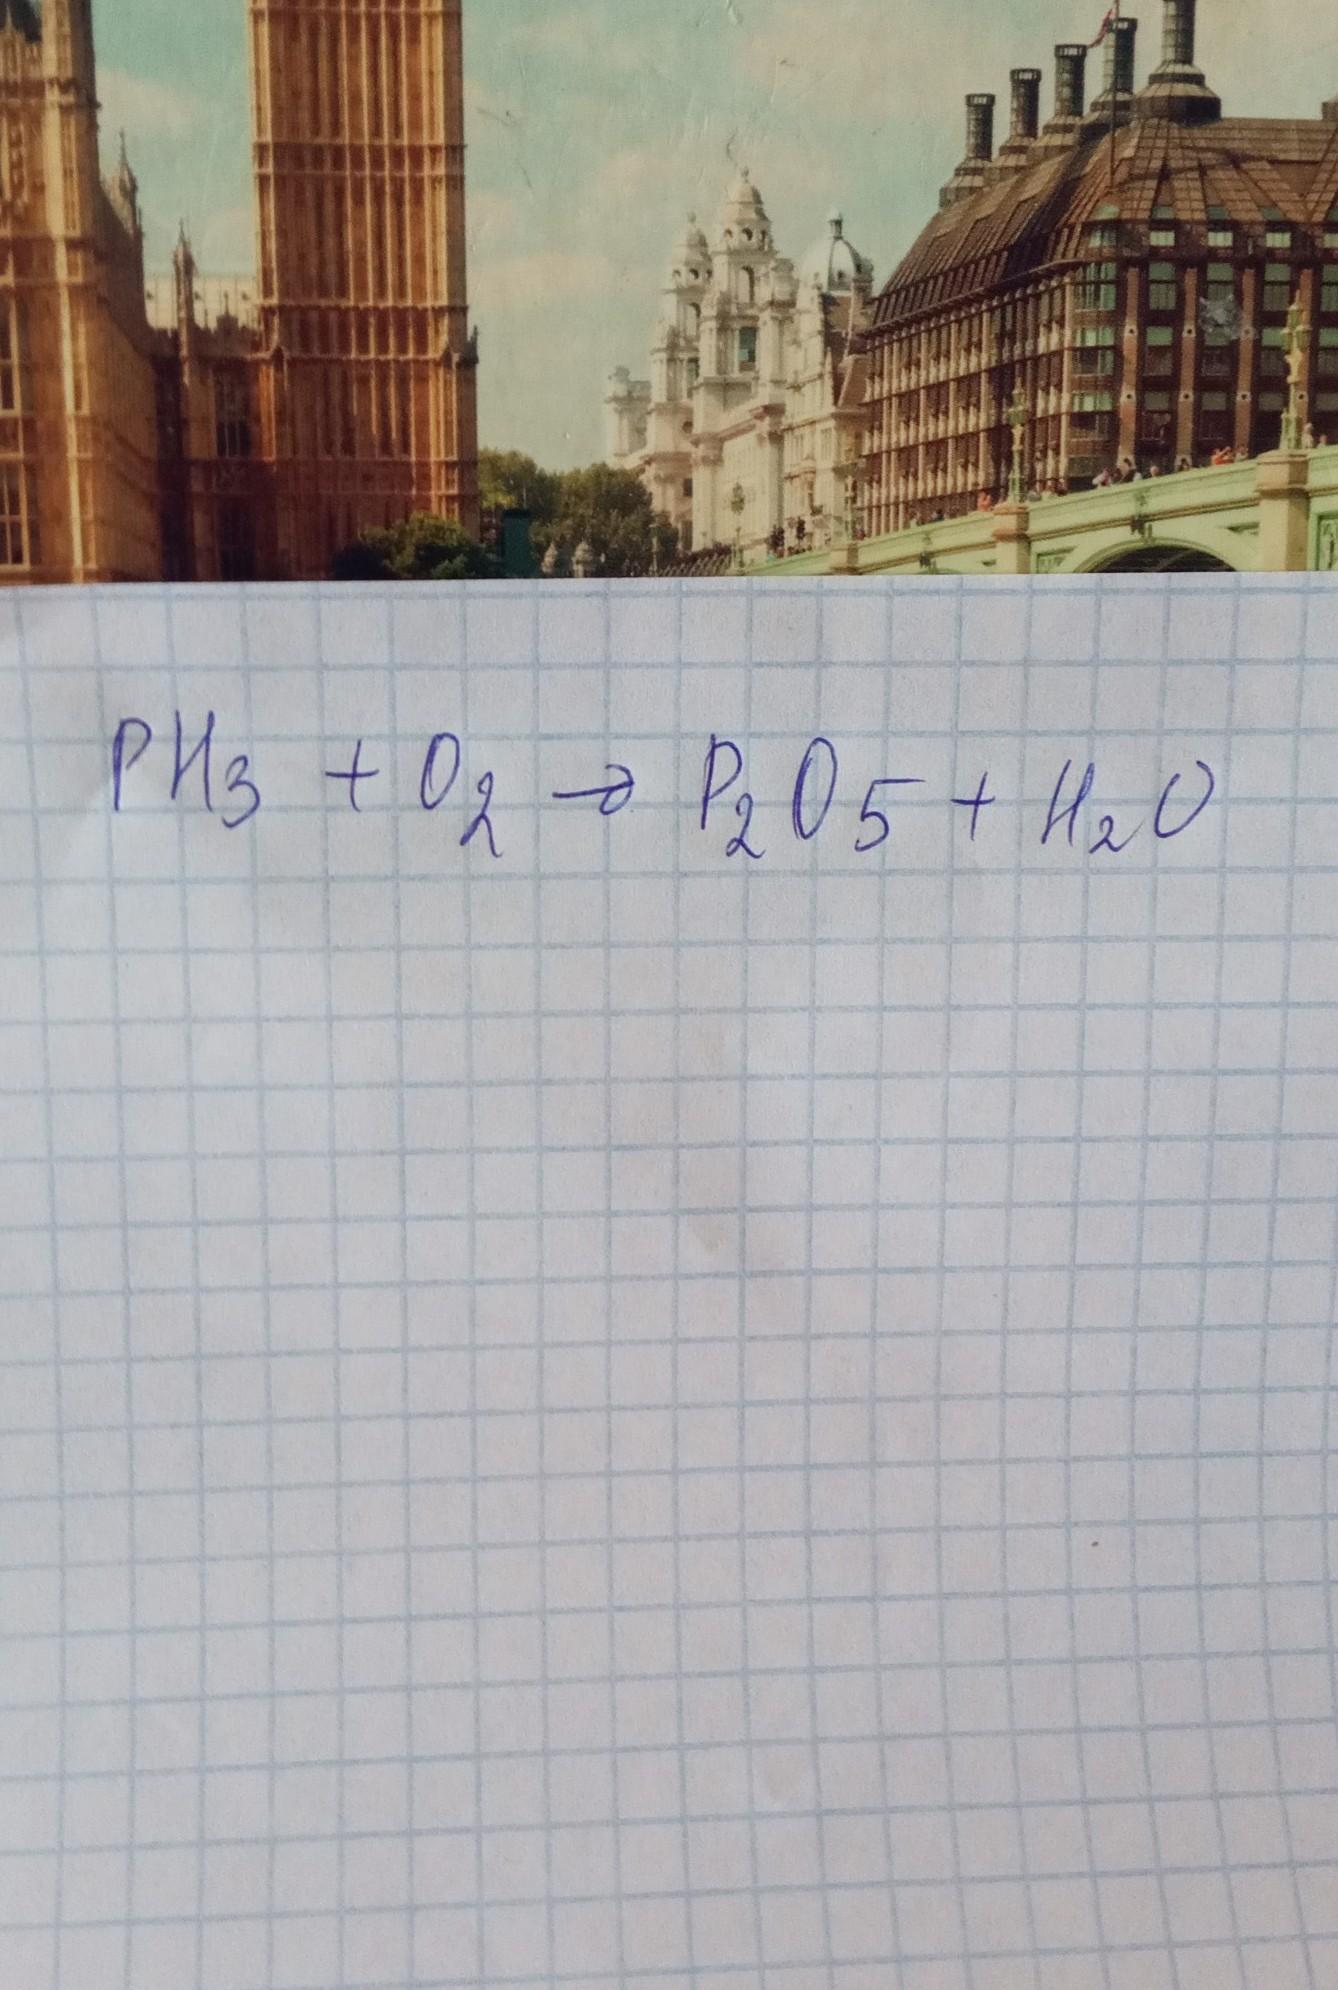 PH3 + O2 → P2O5 + H2O